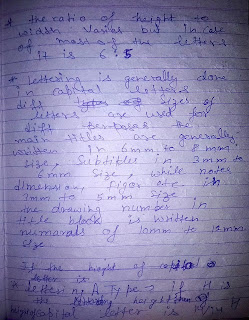 * the ratio of height to
width varies but in case
of most of the letters
it is 6:5
* lettering is generally done
in capital letters
diff sizes of
letters are used for
diff
main titles are generally
written in 6mm to 8mm
size, Subtitles in 3mm to
6mm size, while notes
dimension, etc. in
3mm to 5mm size
the drawing number in
title block is written
numerals of 10mm to 12mm
size
If the height of
letter is
lettering A Type if it is
the height of
capital letter is